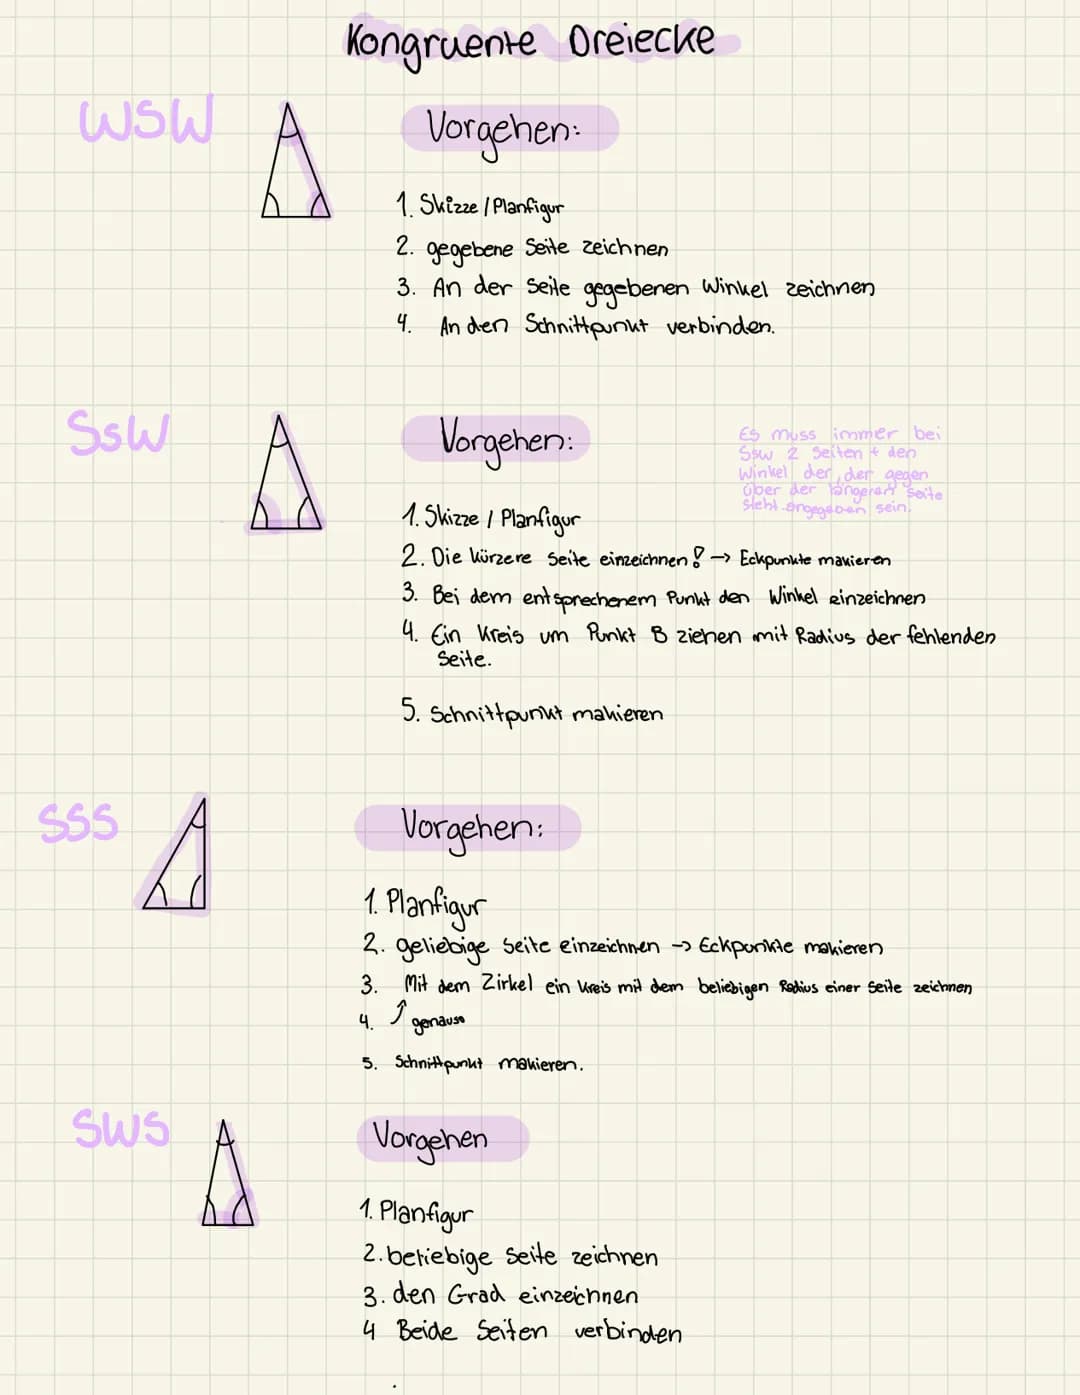 Kongruente Dreiecke
WSW
Vorgehen:
1. Skizze / Planfigur
2. gegebene Seite zeichnen
3. An der Seite gegebenen Winkel zeichnen
4. An den Schnittpunkt verbinden.
SsW
Vorgehen:
Es muss immer bei
Ssw 2 Seiten + den
Winkel der, der gegen
über der längeren Seite
steht angegeben sein.
1. Skizze / Planfigur
2. Die kürzere Seite einzeichnen! → Eckpunkte makieren
3. Bei dem entsprechenem Punkt den Winkel einzeichnen
4. Ein Kreis um Punkt B ziehen mit Radius der fehlenden
Seite.
5. Schnittpunkt makieren
SSS
Vorgehen:
1. Planfigur
2. geliebige Seite einzeichnen → Eckpunkte makieren
3. Mit dem Zirkel ein Kreis mit dem beliebigen Radius einer Seite zeichnen
4. genauso
5. Schnittpunkt makieren.
SWS
Vorgehen
1. Planfigur
2. beliebige Seite zeichnen
3. den Grad einzeichnen
4 Beide Seiten verbinden